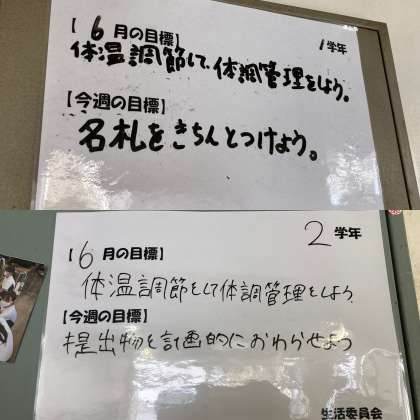 【 6 月の目標】
1学年
体温調節して、体調管理をしよう。
【今週の目標】
名札をきちんとつけよう。
2 学年
【 6 月の目標】
体温調節をして体調管理をしよう
【今週の目標】
提出物を計画的におわらせよう
生活委員会